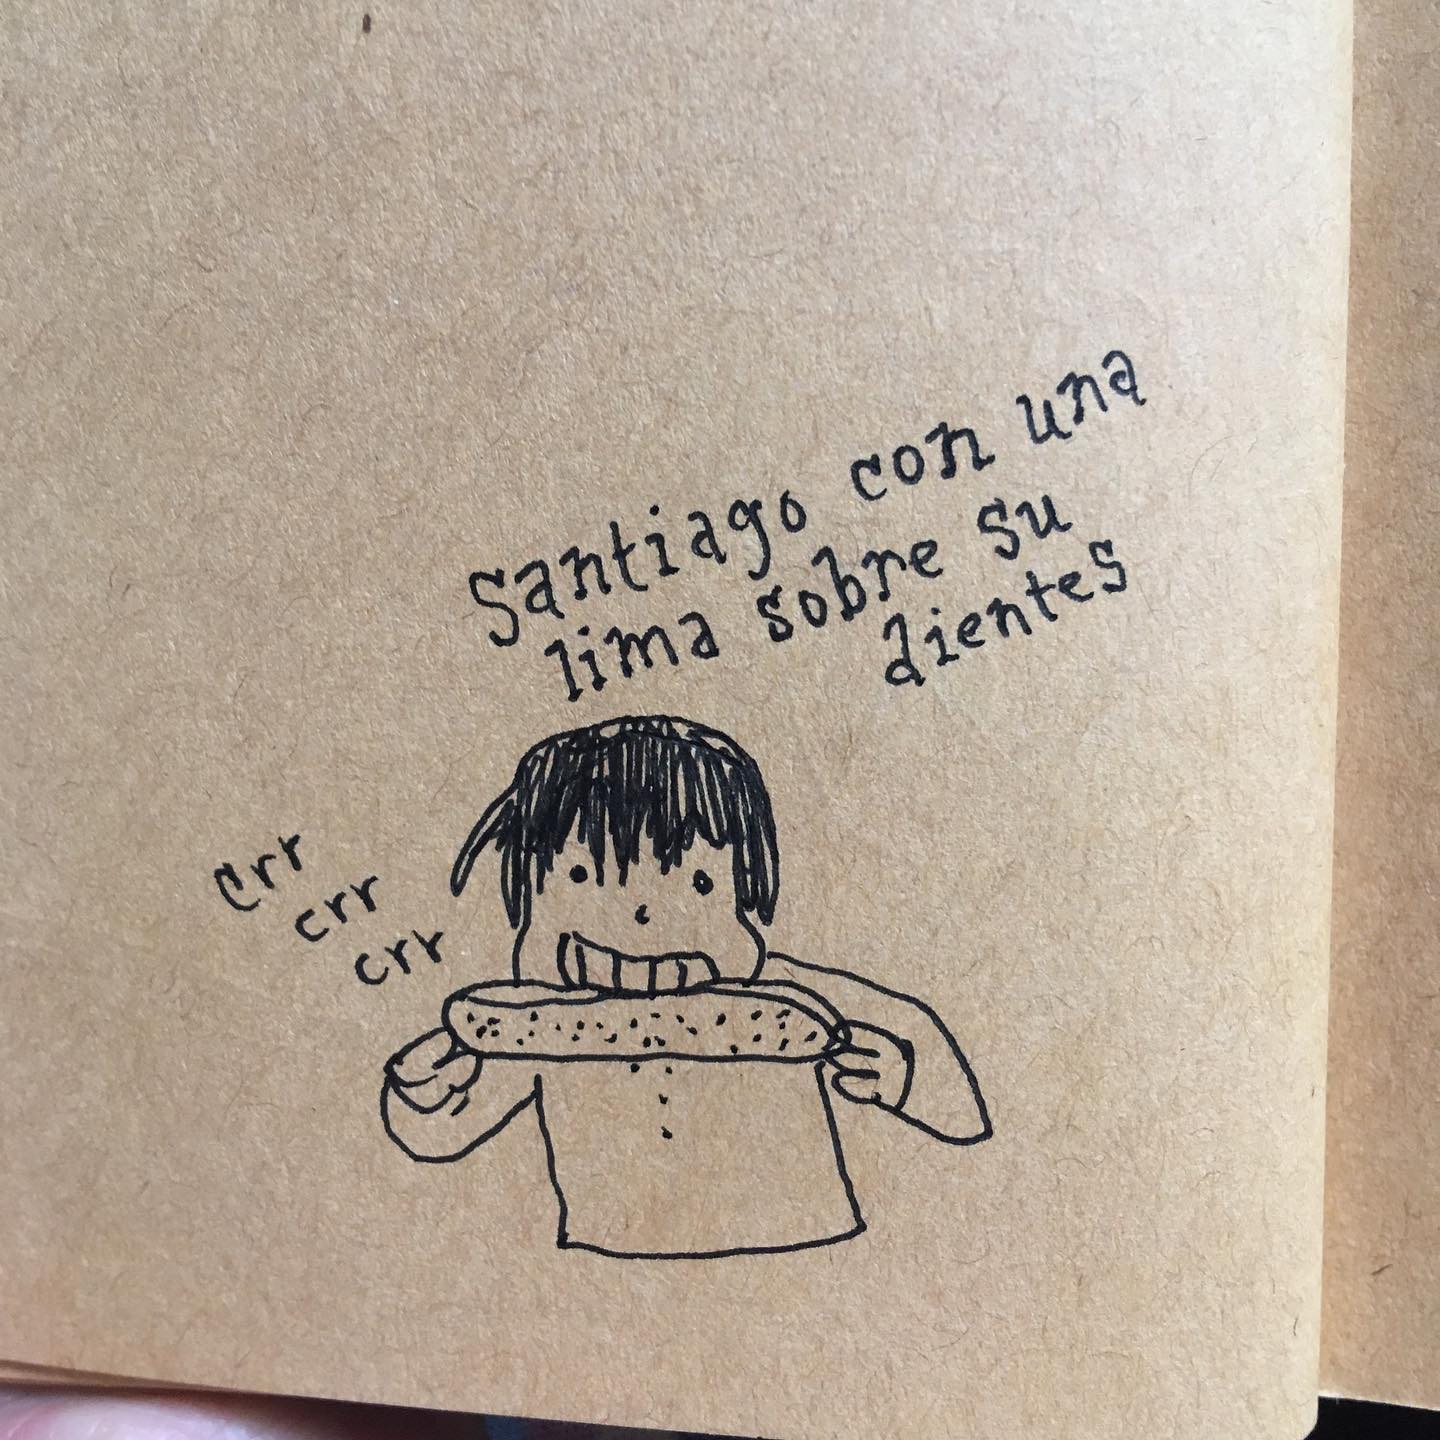 Santiago con una
lima sobre su
dientes
crr
crr
crr